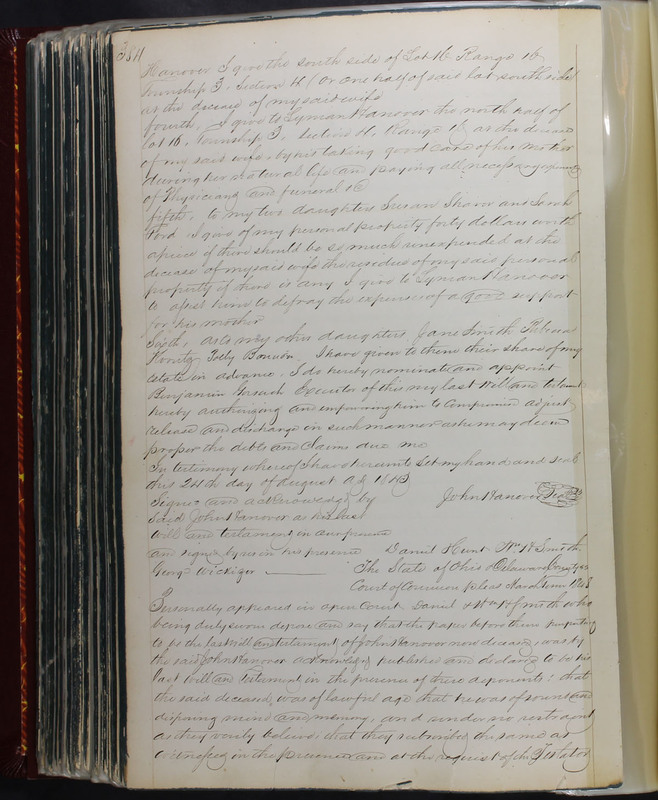 384
Hanover I give the south side of Lot 16 Range 16
Township 3, Section 4 (Or one half of said lot, south side
at the decease of my said wife
fourth, I give to Lyman Hanover the north half of
lot 16, Township 3, Section 4, Range 16 at the decease
of my said wife, by his taking good care of his mother
during her natural life and paying all necessary
of Physicians and funeral
fifth, to my two daughters Susan Sharon and Sarah
Ford I give of my personal property forty dollars worth
apiece if there should be so much unexpended at the
decease of my said wife the residue of my said personal
property if there is any I give to Lyman Hanover
to assist him to defray the expense of a good support
for his mother
Sixth, As to my other daughters, Jane Smith Rebecca
Polly I have given to them their share of my
estate in advance, I do hereby nominate and appoint
Benjamin Executor of this my last Will and testament
hereby authorising and empowering him to Compromise adjust
release and discharge in such manner as he may deem
proper the debts and claims due me
In testimony whereof I have hereunto Set my hand and seal
this 24th day of August AD 1843
Signed and acknowledged by John Hanover Seal
Said John Hanover as his last
will and testament in our presence
and signed by us in his presence Daniel Hunt Wm H Smith
George Wickizer
The State of Ohio Delaware County ss
Court of Common Pleas March Term
Personally appeared in open Court Daniel & Wm H Smith who
being duly sworn depose and say that the paper before them purporting
to be the last will and testament of John Hanover now deceased, was by
the said John Hanover acknowledged published and declared to be his
last will and testament in the presence of these deponents: that
the said deceased, was of lawful age that he was of sound and
disposing mind and memory, and under no restraint
as they verily believe that they subscribed the same as
witnesses in the presence and at the request of the Testator